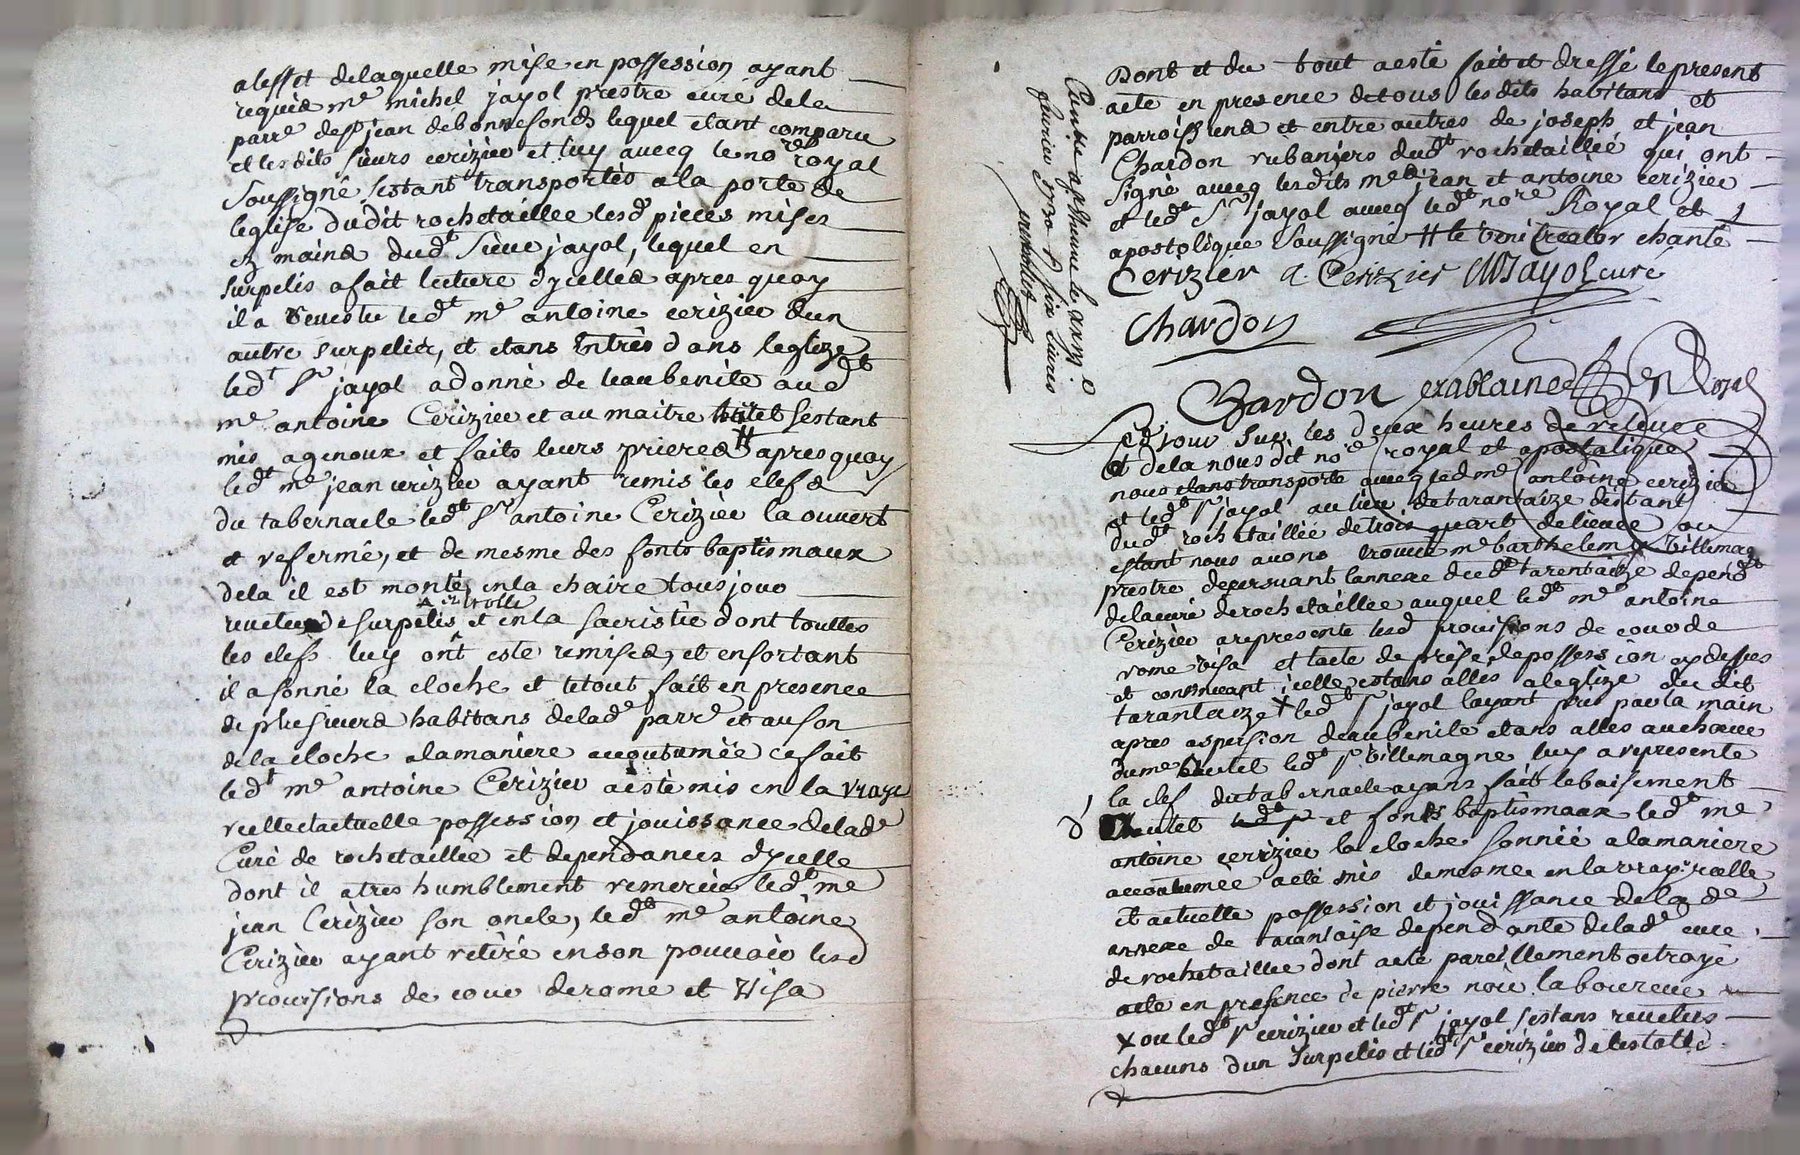 aleffet delaquelle mise en possession ayant
requis me michel jayol prestre cure dela
parre de st jean debonnefonds lequel etant comparu
et lesdits sieurs cerizier et luy avecq le nore royal
soussigné sestant transportés a la porte de
leglise dudit rochetaillee lesd pieces mises
ez mains dudt sieur jayol, lequel en
surpelis a fait lecture dycelles apres quoy
il a revestu ledt me antoine cerizier dun
autre surpelis, et etans entrés dans leglize
ledt sr jayol a donné de leau benite audt
me antoine Cerizier et au maitre hautel sestant
mis agenoux et faits leurs prieres # apres quoy
ledt me jean cerizier ayant remis les clefs
du tabernacle ledt sr antoine Cerizier la ouvert
et refermé, et de mesme des fonts baptismaux
dela il est monté en la chaire tousjour
et etolle
revetu de surpelis et en la sacristie dont touttes
les clefs luy ont este remises, et ensortant
il a sonné la cloche et le tout fait en presence
de plusieurs habitans delade parre et au son
de la cloche alamaniere accoutumée ce fait
ledt me antoine Cerizier a esté mis en la vraye
reelle et actuelle possession et jouissance delade
Cure de rochetaillée et dependances dycelle
dont il a tres humblement remercié ledt me
jean Cerizier son oncle, ledt me antoine
Cerizier ayant retiré en son pouvoir lesd
provisions de cour derome et visa
Dont et du tout a esté fait et dressé le present
acte en presence de tous lesdits habitans et
parroissiens et entre autres de joseph et jean
Chardon rubaniers dudt rochetaillée qui ont
signé avecq lesdits mes jean et antoine cerizier
et ledt sr jayol avecq ledt nore Royal et
apostolique soussigné # le veni Creator chanté
Cerizier A Cerizier M Jayol curé
Chardon
Chardon
Led jour sur les deux heures de relevée
et dela nous dit nore royal et apostolique
nous etans transporte avecq led me antoine cerizier
et ledt sr jayol au lieu de tarantaize distant
dudt rochetaillée de trois quart de lieue ou
estant nous avons trouvé me barthelemy villemagne
prestre desservant lannexe dudt tarentaize dependt
delacuré derochetaillée auquel ledt me antoine
Cerizier a represente lesd provisions de cour de
rome visa et lacte de prise depossession cy dessus
et continuant icelle estans alles aleglize dudit
tarantaize x ledt sr jayol layant pris par la main
apres aspersion deau benite etans alles au choeur
dume hautel ledt sr villemagne luy a represente
la clef du tabernacle ayans fait lebaisement
d'hautel et fonts baptismaux ledt me
antoine cerizier la cloche sonnée alamaniere
accoutumée a eté mis demesme en la vraye reelle
et actuelle possession et jouissance de la de
annexe de tarantaise dependante delade cure
de rochetaillee dont acte pareillement octroyé
acte en presence de pierre noir laboureur
x ou ledt sr cerizier et ledt sr jayol sestans revetus
chacuns dun surpelis et ledt sr cerizier delestolle